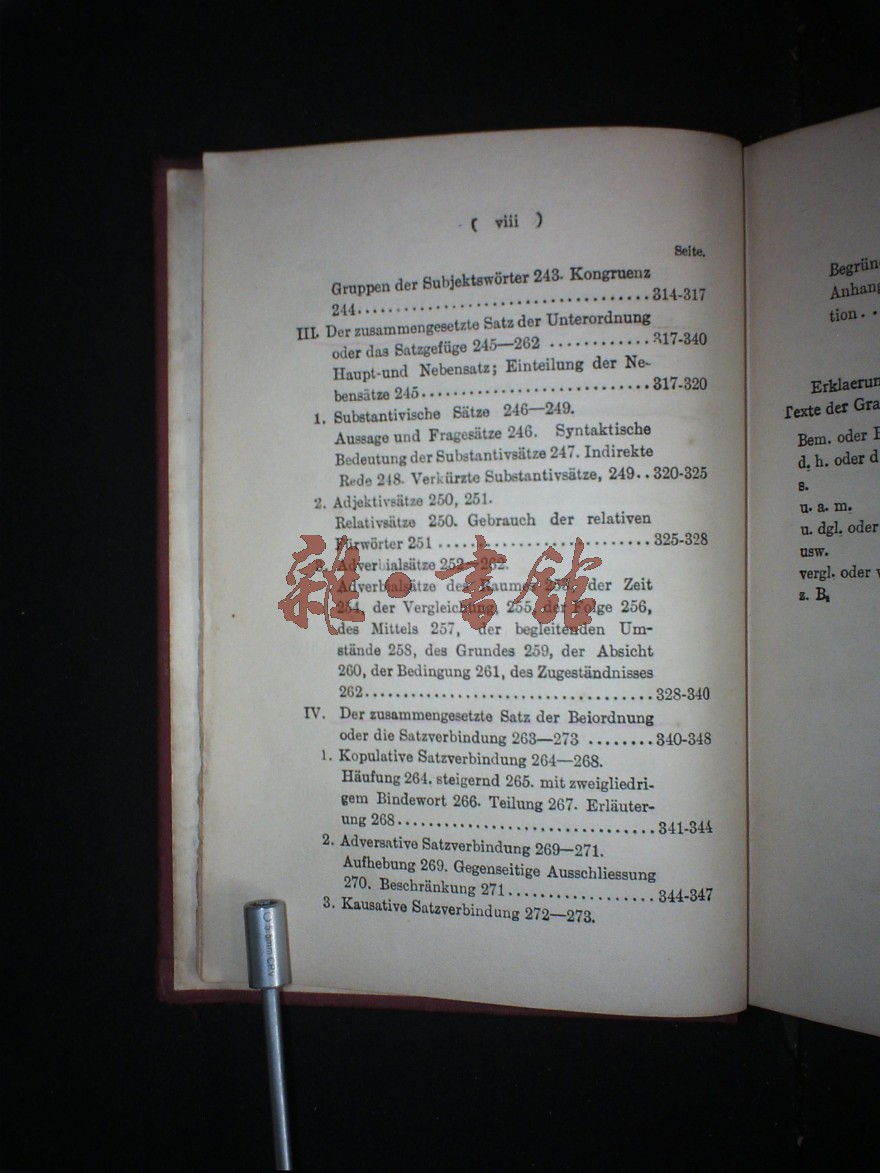 ( viii )
Seite.
Gruppen der Subjektswörter 243. Kongruenz
244.......................................314-317
III. Der zusammengesetzte Satz der Unterordnung
oder das Satzgefüge 245—262 ............317-340
Haupt-und Nebensatz; Einteilung der Ne-
bensätze 245..............................317-320
1. Substantivische Sätze 246—249.
Aussage und Fragesätze 246. Syntaktische
Bedeutung der Substantivsätze 247. Indirekte
Rede 248. Verkürzte Substantivsätze, 249..320-325
2. Adjektivsätze 250, 251.
Relativsätze 250. Gebrauch der relativen
Fürwörter 251 ............................325-328
3. Adverbialsätze 252—262.
Adverbialsätze des Raumes 253, der Zeit
254, der Vergleichung, 255, der Folge 256,
des Mittels 257, der begleitenden Um-
stände 258, des Grundes 259, der Absicht
260, der Bedingung 261, des Zugeständnisses
262.......................................328-340
IV. Der zusammengesetzte Satz der Beiordnung
oder die Satzverbindung 263—273 ........340-348
1. Kopulative Satzverbindung 264—268.
Häufung 264. steigernd 265. mit zweigliedri-
gem Bindewort 266. Teilung 267. Erläuter-
ung 268..................................341-344
2. Adversative Satzverbindung 269—271.
Aufhebung 269. Gegenseitige Ausschliessung
270. Beschränkung 271...................344-347
3. Kausative Satzverbindung 272—273.
Begrün
Anhang
tion..
Erklaerun
Texte der Gra
Bem. oder
d. h. oder d
s.
u. a. m.
u. dgl. oder
usw.
vergl. oder
z. B.
雜·書館
5.5mm CRV